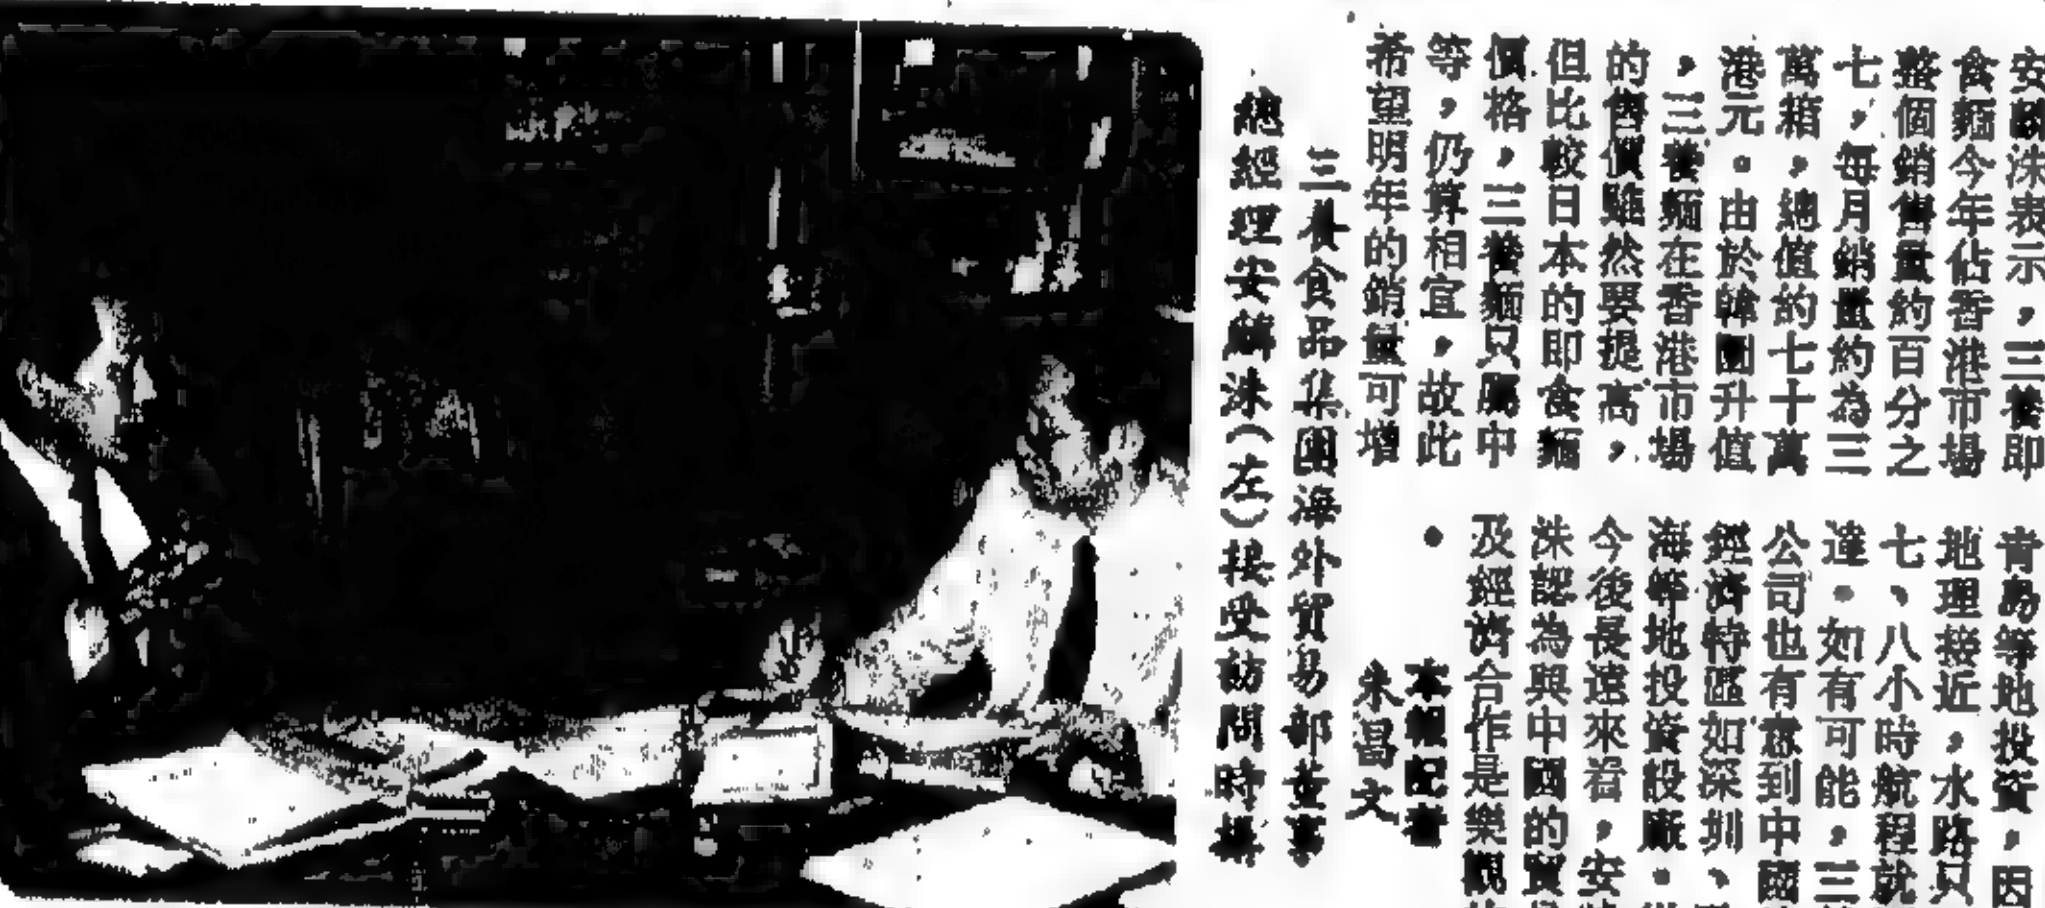 安麟洙表示，三養即
食麵今年佔香港市場
整個銷售量約百分之
七，每月銷量約為三
萬箱，總值約七十萬
港元。由於韓圜升值
，三養麵在香港市場
的售價雖然要提高，
但比較日本的即食麵
價格，三養麵只屬中
等，仍算相宜，故此
希望明年的銷量可增
青島等地投資，因
地理接近，水路只
七、八小時航程就
達。如有可能，三
公司也有意到中國
經濟特區如深圳、
海等地投資設廠。
今後長遠來看，安
洙認為與中國的貿
及經濟合作是樂觀
●本報記者
朱昌文
三養食品集團海外貿易部董事
總經理安麟洙（左）接受訪問時攝